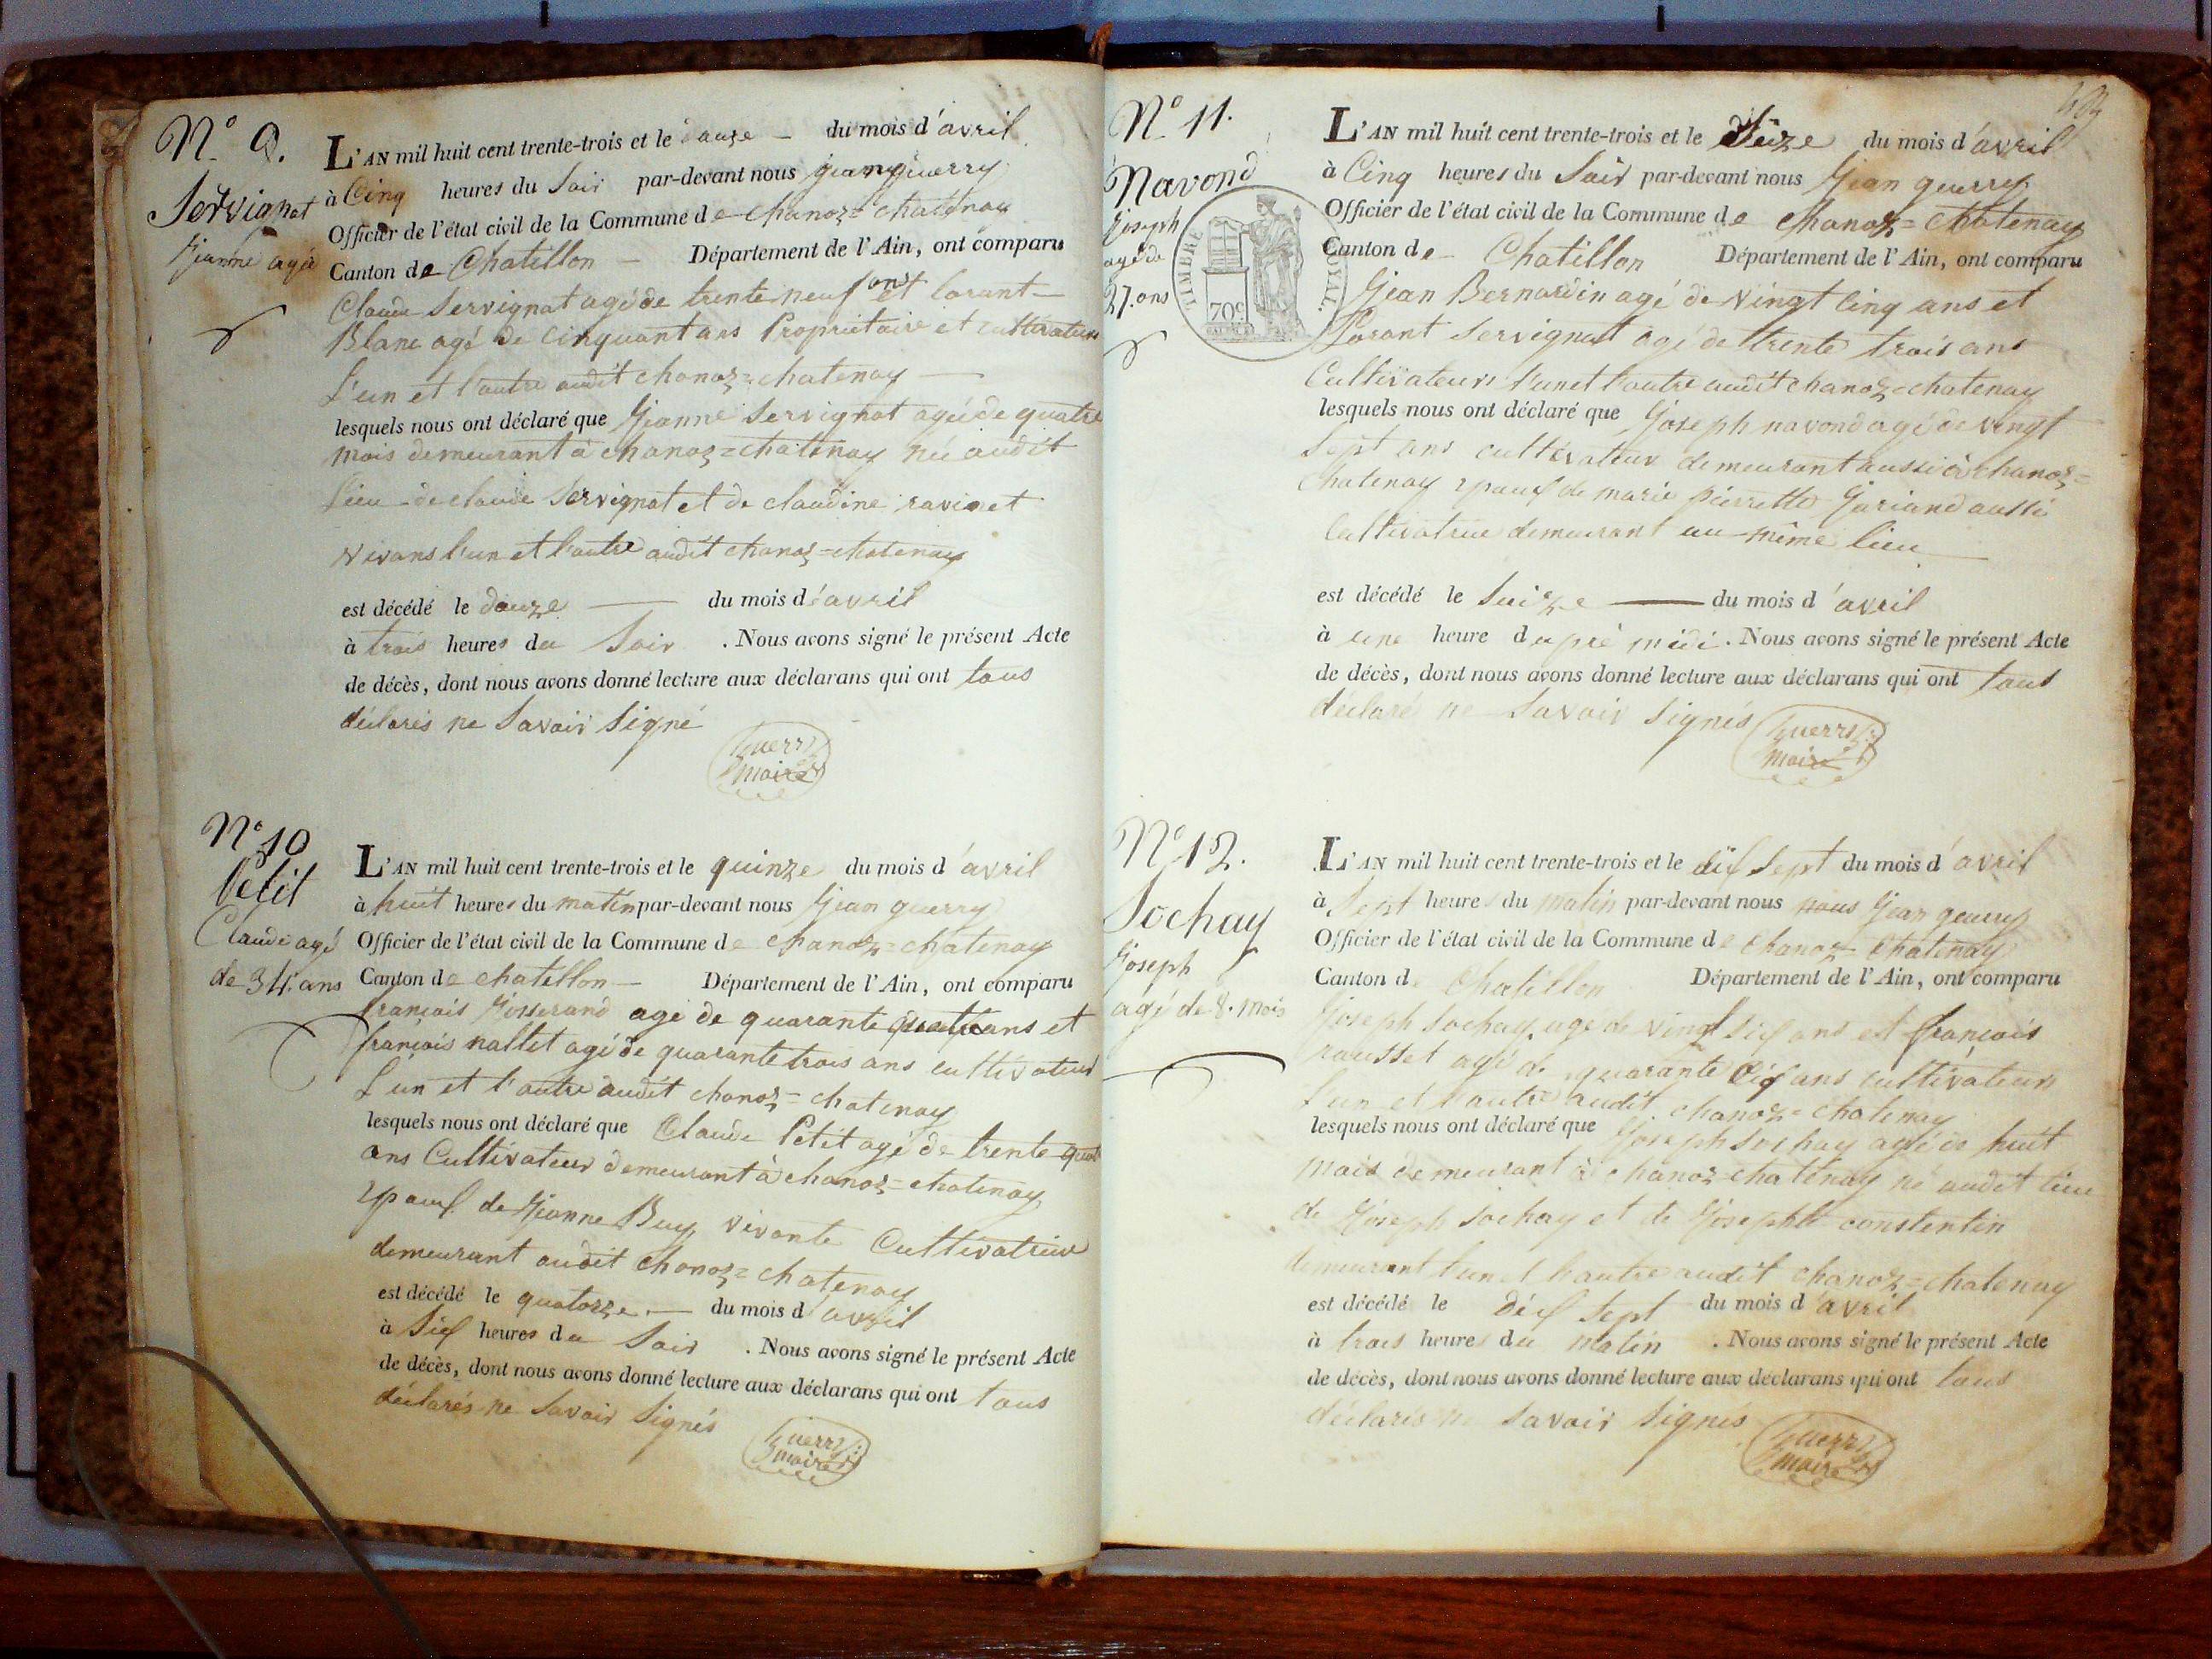 N° 9.
Servignat
Jeanne agée
L'AN mil huit cent trente-trois et le douze du mois d'avril
à Cinq heures du Soir par-devant nous jean guerry
Officier de l'état civil de la Commune de chanoz=chatenay
Canton de Chatillon Département de l'Ain, ont comparu
Claude Servignat agé de trente neuf ans et Lorant
Blanc agé de cinquant ans Propriétaire et cultivateur
L'un et l'autre audit chanoz=chatenay
lesquels nous ont déclaré que Jeanne Servignat agée de quatre
mois demeurant à chanoz=chatenay née audit
Lieu de claude Servignat et de claudine ravinet
vivans l'un et l'autre audit chanoz=chatenay
est décédé le douze du mois d'avril
à trois heures du Soir . Nous avons signé le présent Acte
de décès, dont nous avons donné lecture aux déclarans qui ont tous
déclarés ne Savoir Signé
Guerry
maire
N° 10
Petit
Claude agé
de 34 ans
L'AN mil huit cent trente-trois et le quinze du mois d'avril
à huit heures du matin par-devant nous Jean guerry
Officier de l'état civil de la Commune de chanoz=chatenay
Canton de chatillon Département de l'Ain, ont comparu
francois Josserand agé de quarante quatre ans et
francois nallet agé de quarante trois ans cultivateurs
L'un et l'autre audit chanoz=chatenay
lesquels nous ont déclaré que Claude Petit agé de trente quat
ans Cultivateur demeurant à chanoz=chatenay
epoux de Jeanne Buy vivante Cultivatrice
demeurant audit chanoz=chatenay
est décédé le quatorze du mois d'avril
à Six heures du Soir . Nous avons signé le présent Acte
de décès, dont nous avons donné lecture aux déclarans qui ont tous
déclarés ne Savoir Signés
Guerry
maire
N° 11.
Navond
Joseph
agé de
27. ans
TIMBRE ROYAL.
70c
L'AN mil huit cent trente-trois et le Seize du mois d'avril
à Cinq heures du Soir par-devant nous Jean guerry
Officier de l'état civil de la Commune de chanoz=chatenay
Canton de Chatillon Département de l'Ain, ont comparu
Jean Bernardin agé de vingt Cinq ans et
Lorant Servignat agé de trente trois ans
Cultivateurs l'un et l'autre audit chanoz=chatenay
lesquels nous ont déclaré que Joseph navond agé de vingt
Sept ans cultivateur demeurant aussi à chanoz=
chatenay epoux de marie pierrette Guriand aussi
Cultivatrice demeurant au même lieu
est décédé le Seize du mois d'avril
à une heure d'apré midi. Nous avons signé le présent Acte
de décès, dont nous avons donné lecture aux déclarans qui ont tous
déclaré ne Savoir Signés
Guerry
maire
N° 12.
Sochay
Joseph
agé de 8. mois
L'AN mil huit cent trente-trois et le dix Sept du mois d'avril
à Sept heures du matin par-devant nous nous Jean guerry
Officier de l'état civil de la Commune de chanoz=chatenay
Canton de Chatillon Département de l'Ain, ont comparu
Joseph Sochay age de vingt Six ans et francois
rousset agé de quarante Six ans cultivateurs
L'un et l'autre audit chanoz=chatenay
lesquels nous ont déclaré que Joseph Sochay agé de huit
mois demeurant à chanoz=chatenay né audit lieu
de Joseph Sochay et de Josephte constentin
demeurant l'un et l'autre audit chanoz=chatenay
est décédé le dix Sept du mois d'avril
à trois heures du matin . Nous avons signé le présent Acte
de décès, dont nous avons donné lecture aux déclarans qui ont tous
déclarés ne Savoir Signés
Guerry
maire